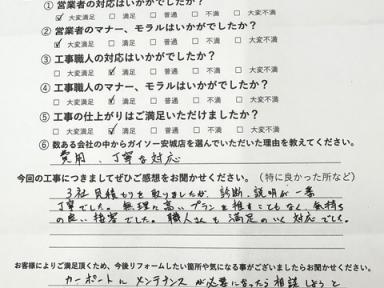 ① 営業者の対応はいかがでしたか?
☑ 大変満足 □ 満足 □ 普通 □ 不満 □ 大変不満
② 営業者のマナー、モラルはいかがでしたか?
□ 大変満足 ☑ 満足 □ 普通 □ 不満 □ 大変不満
③ 工事職人の対応はいかがでしたか?
□ 大変満足 ☑ 満足 □ 普通 □ 不満 □ 大変不満
④ 工事職人のマナー、モラルはいかがでしたか?
□ 大変満足 ☑ 満足 □ 普通 □ 不満 □ 大変不満
⑤ 工事の仕上がりはご満足いただけましたか?
□ 大変満足 ☑ 満足 □ 普通 □ 不満 □ 大変不満
⑥ 数ある会社の中からガイソー安城店を選んでいただいた理由を教えてください。
費用、丁寧な対応
今回の工事につきましてぜひご感想をお聞かせください。(特に良かった所など)
3社見積もりを取りましたが、診断、説明が一番
丁寧でした。無理に高いプランを推すこともなく、気持ち
の良い接客でした。職人さんも満足のいく対応でした。
お客様によりご満足頂くため、今後リフォームしたい箇所や気になる事がございましたらお聞かせください。
カーポートにメンテナンスが必要になったら相談しようと